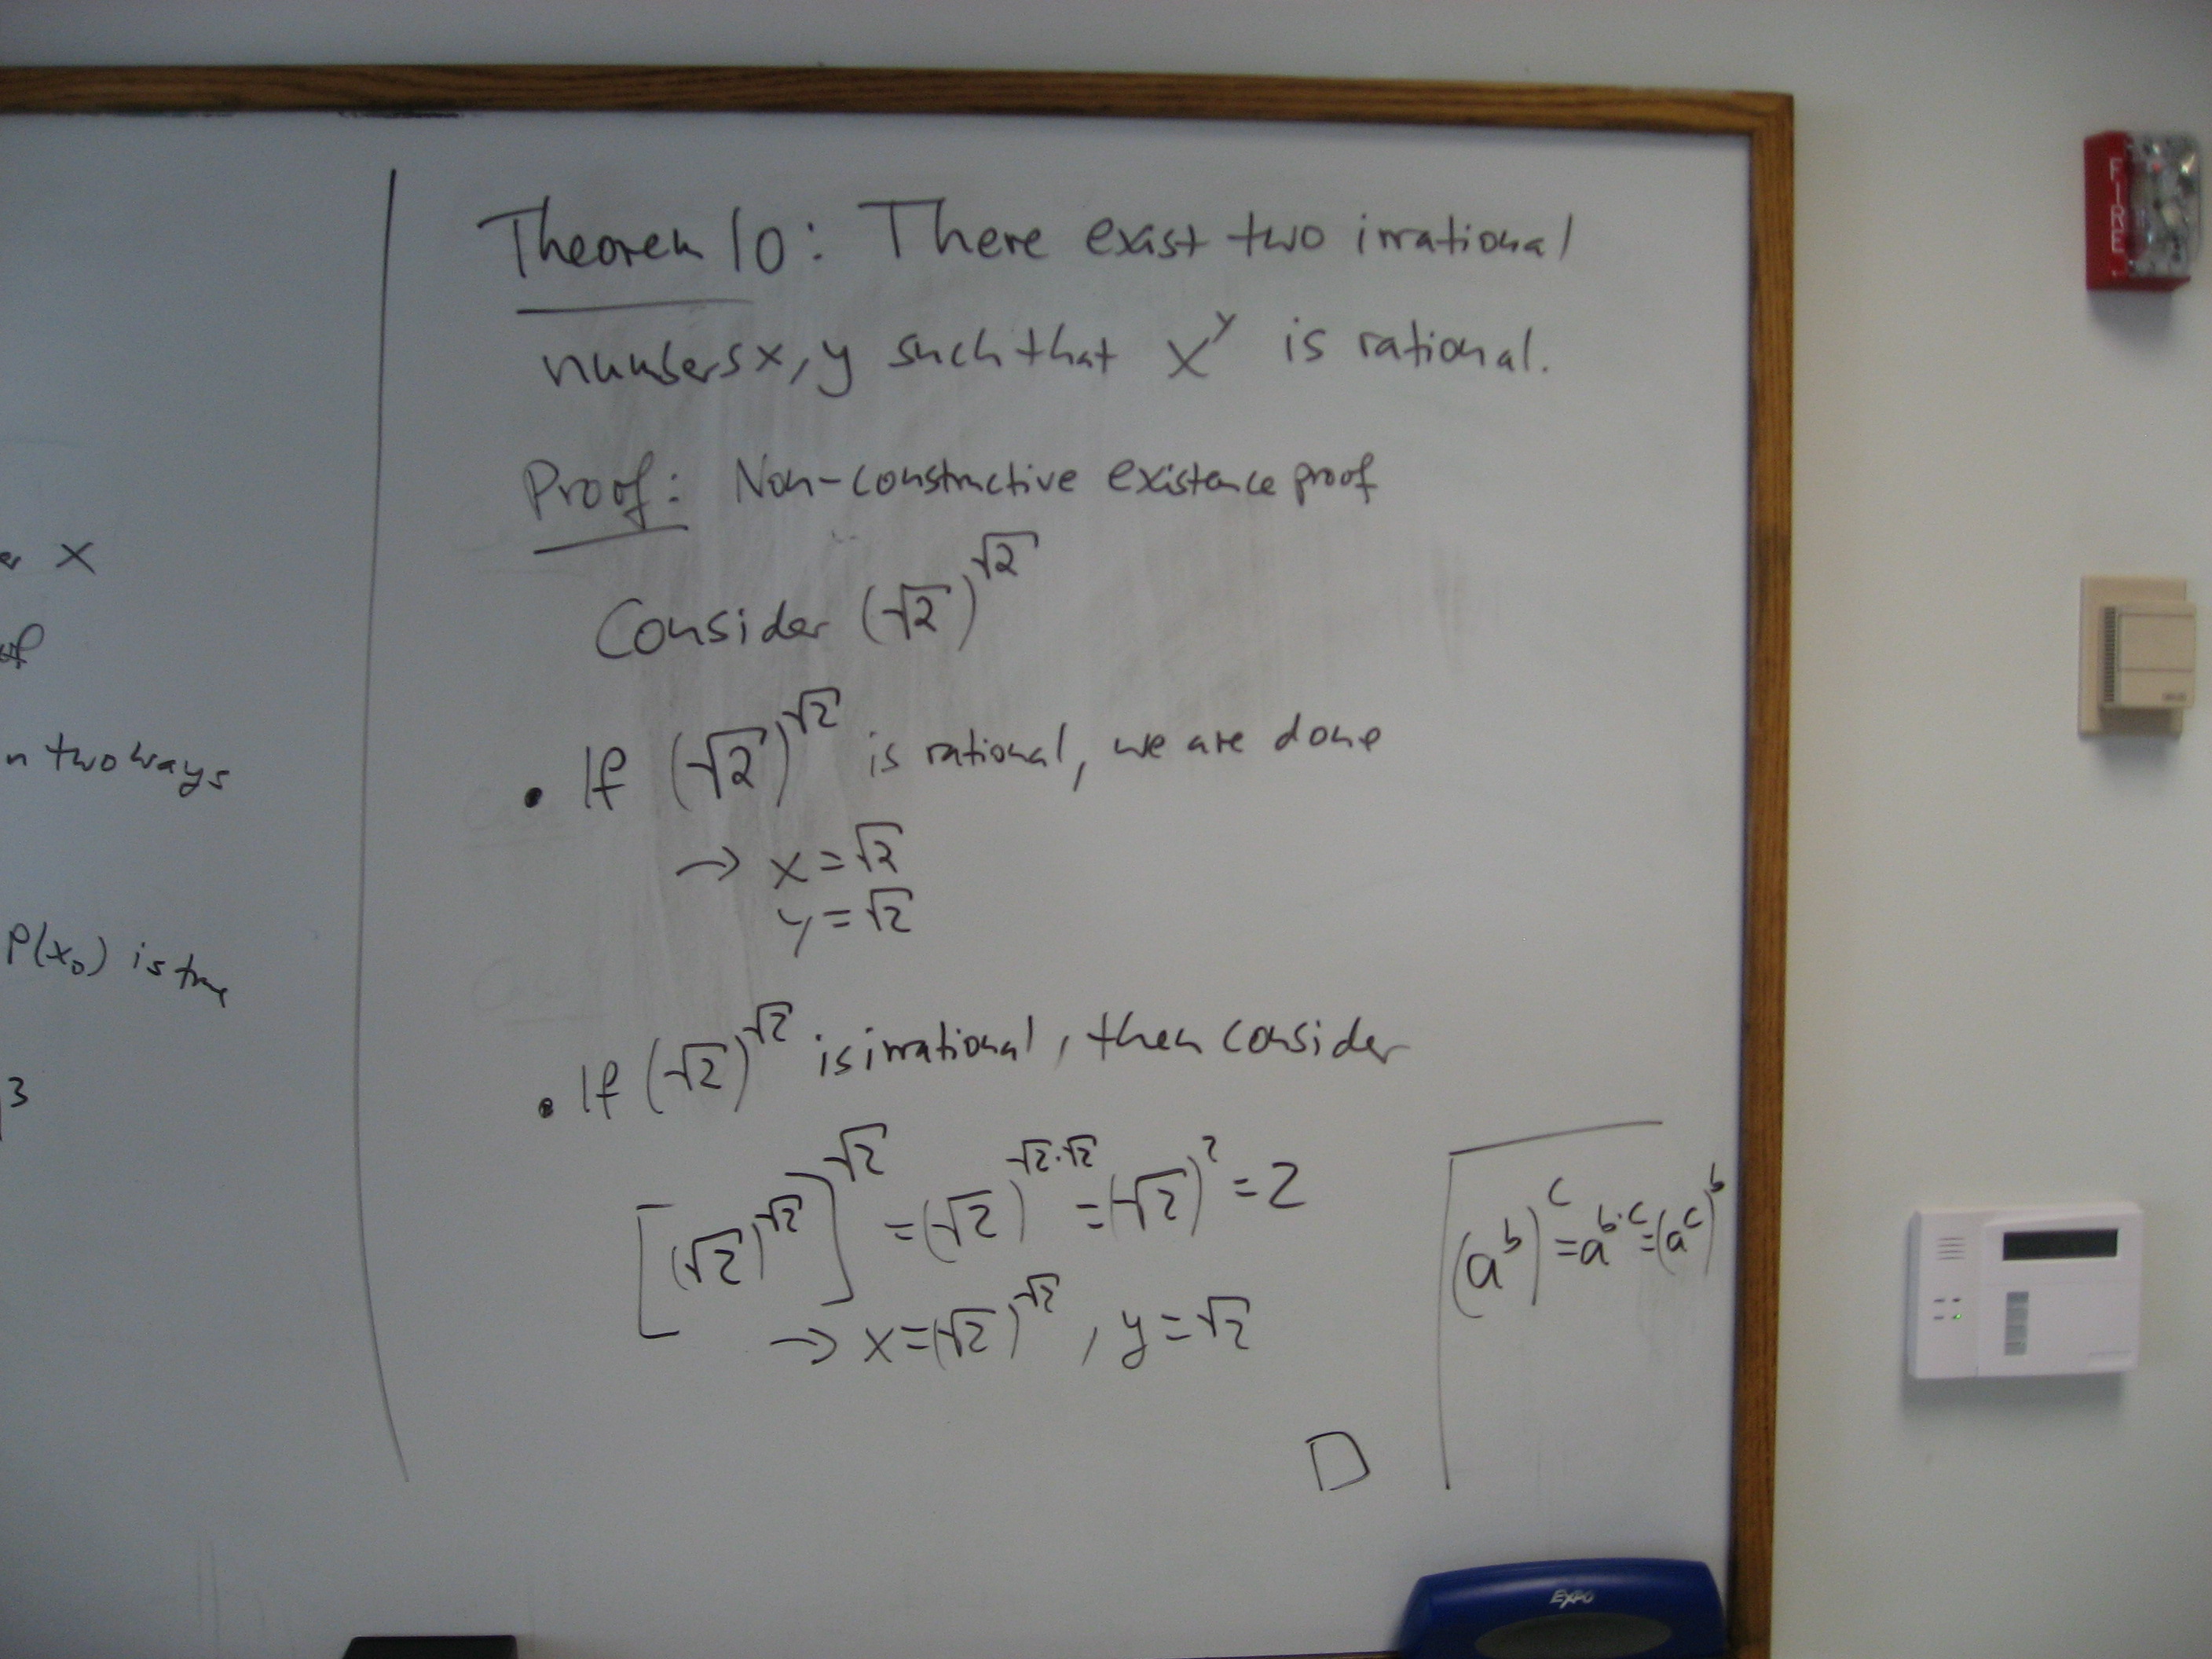 er X
of
n two ways
P(x₀) is true
3
Theorem 10: There exist two irrational
numbers x, y such that x^y is rational.
Proof: Non-constructive existence proof
Consider (√2)^√2
• If (√2)^√2 is rational, we are done
→ x = √2
y = √2
• If (√2)^√2 is irrational, then consider
[(√2)^√2]^√2 = (√2)^√2·√2 = (√2)^2 = 2
→ x = (√2)^√2, y = √2
□
(a^b)^c = a^b·c = (a^c)^b
EXPO
FIRE